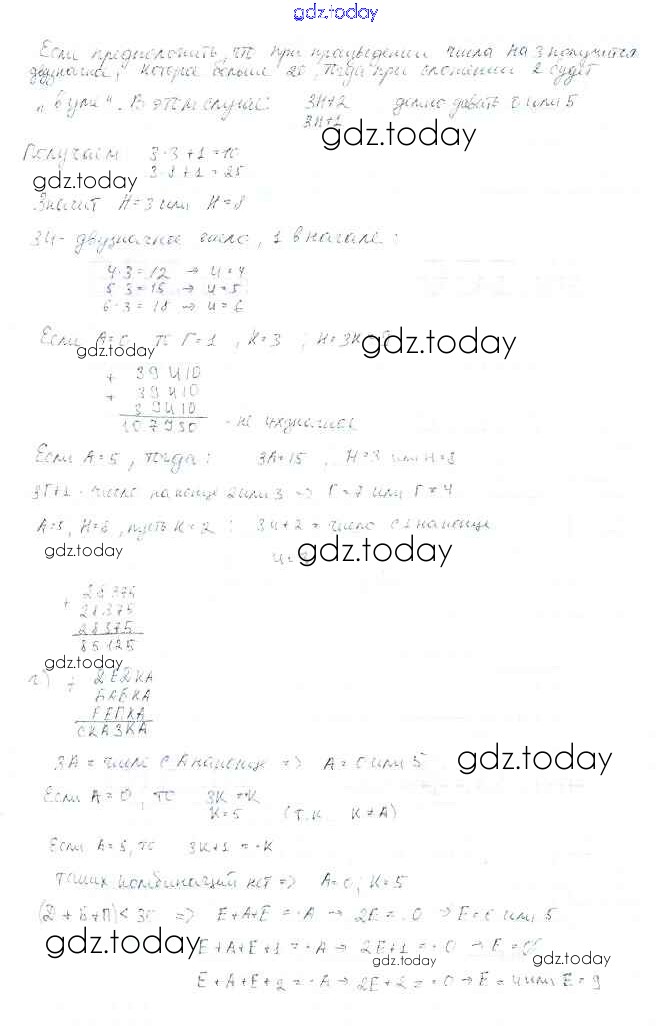 gdz.today
Если предположить, что при произведении числа на 3 получится
двузначное, которое больше 20, тогда при сложении 2 будет
"в уме". В этом случае: 3Н+2 должно давать 0 или 5
3Н+1
gdz.today
Получаем 3·3+1=10
3·8+1=25
gdz.today
Значит Н=3 или Н=8
3И- двузначное число, 1 в начале:
4·3=12 → И=4
5·3=15 → И=5
6·3=18 → И=6
Если А=0, то Г=1, К=3; Н=3К=9
gdz.today
gdz.today
+ 39410
+ 39410
39410
107930 - не
Если А=5, тогда: 3А=15, Н=3 или Н=8
3Г+1 - число на конце 2 или 3 => Г=7 или Г=4
А=5, Н=8, пусть К=2: 3И+2= число с 1 на конце
gdz.today
gdz.today
+ 28375
28375
28375
85125
gdz.today
г) + ДЕДКА
БАБКА
РЕПКА
СКАЗКА
3А = число с А на конце => А=0 или 5
gdz.today
Если А=0, то 3К=·К
К=5 (т.к. К≠А)
Если А=5, то 3К+1=·К
таких комбинаций нет => А=0; К=5
(Д+Б+П)<30 => Е+А+Е=·А → 2Е=·0 → Е=0 или 5
gdz.today
Е+А+Е+1=·А → 2Е+1=·0 →
gdz.today
gdz.today
Е+А+Е+2=·А → 2Е+2=·0 → Е=4 или Е=9